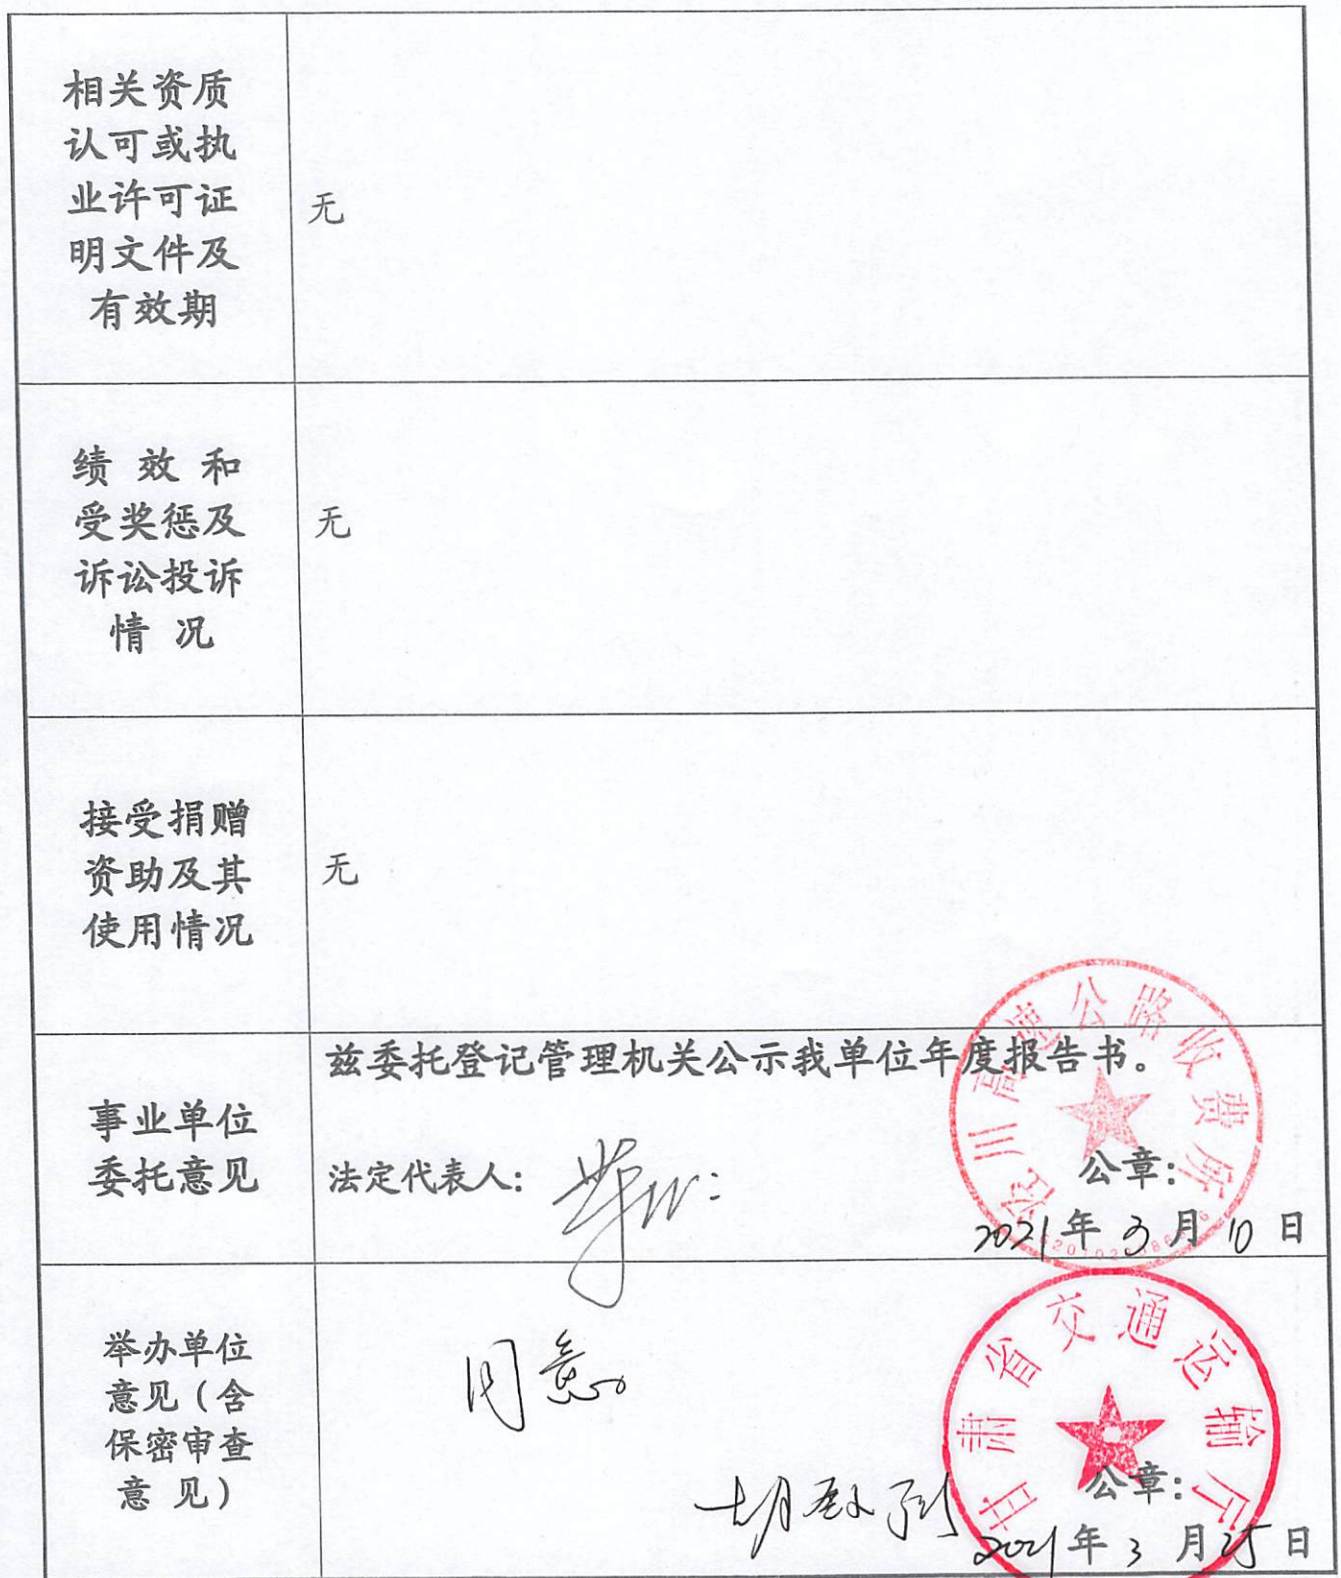 相关资质
认可或执
业许可证
明文件及
有效期
无
绩 效 和
受奖惩及
诉讼投诉
情 况
无
接受捐赠
资助及其
使用情况
无
事业单位
委托意见
兹委托登记管理机关公示我单位年度报告书。
法定代表人:
川高速公路收费所
公章:
2021年3月10日
举办单位
意见(含
保密审查
意 见)
同意
甘肃省交通运输厅
公章:
2021年3月25日